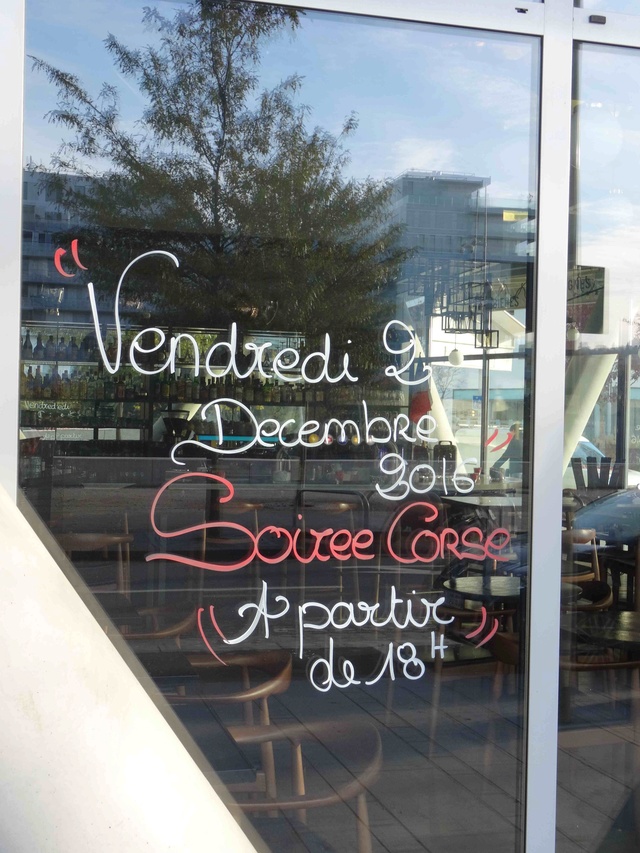 "Vendredi 2
Decembre "
2016
Soiree Corse
"A partir "
de 18H